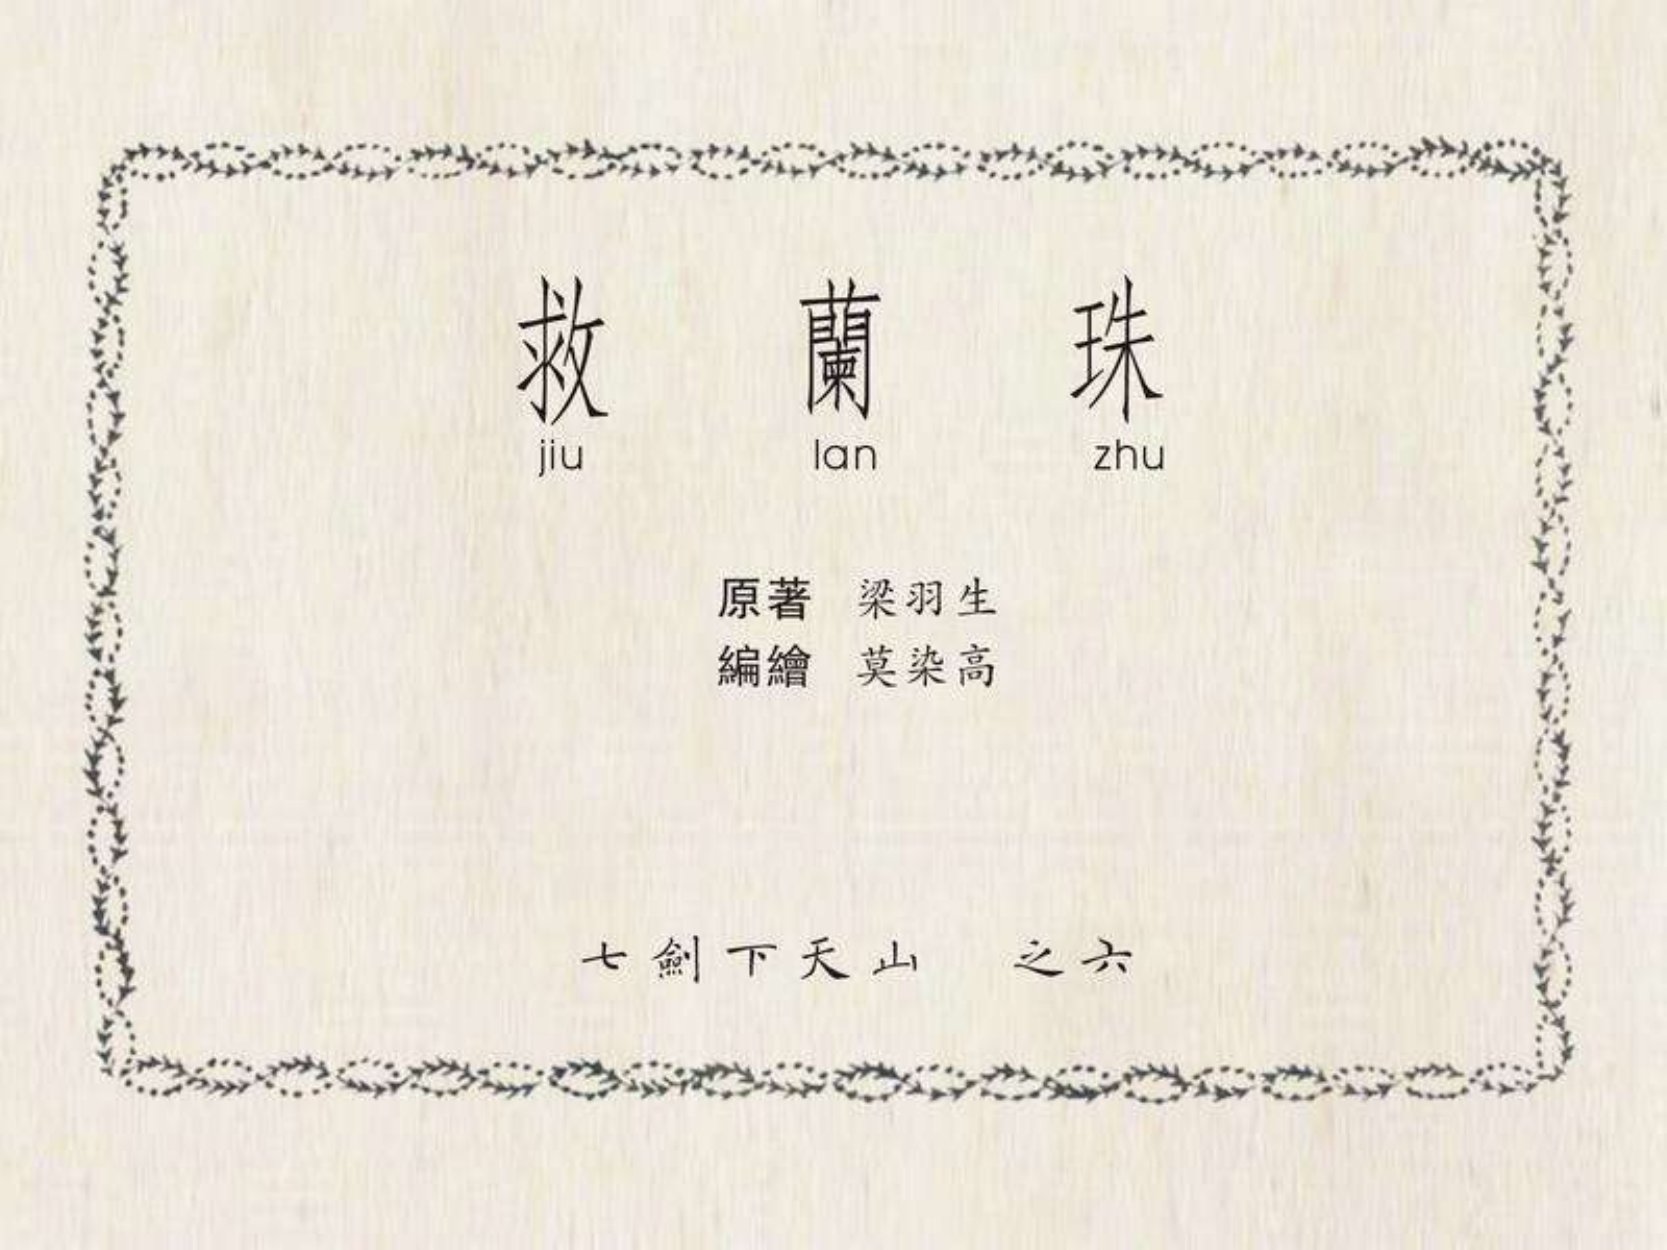 救 蘭 珠
jiu lan zhu
原著 梁羽生
編繪 莫染高
七劍下天山 之六